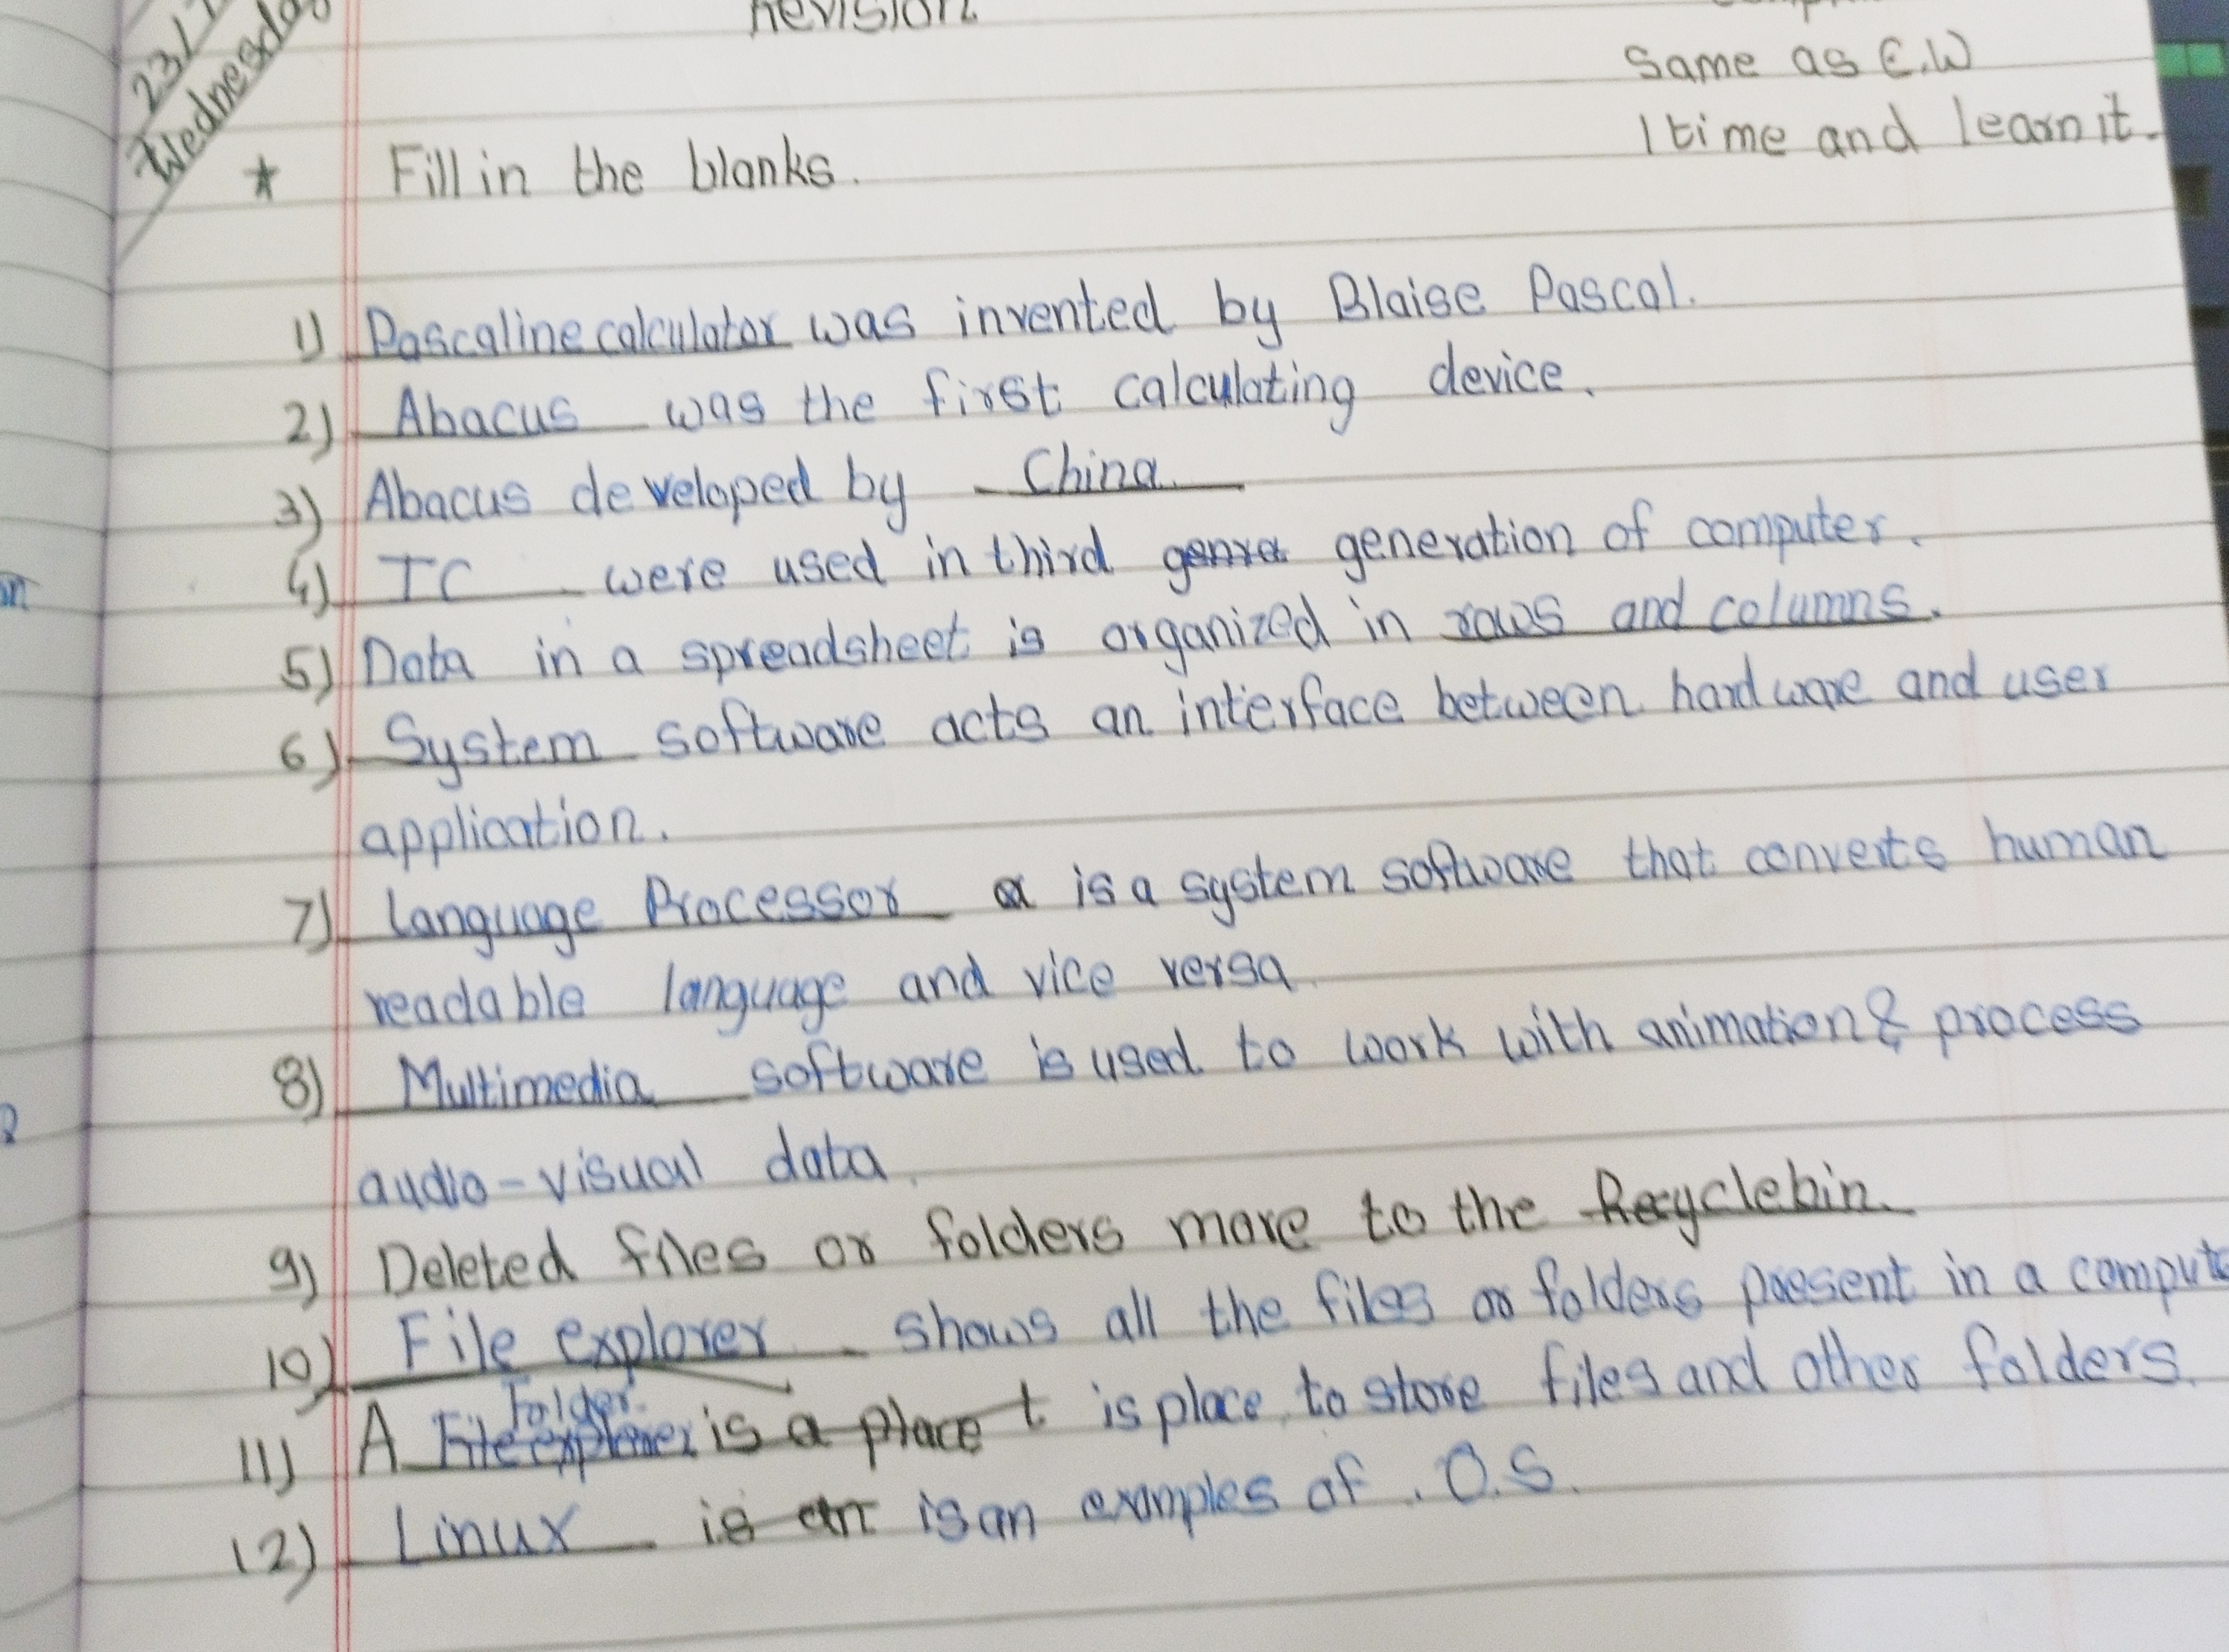 23/
Wednesday
Revision
Same as C.W
1 time and learn it.
★ Fill in the blanks.
1) Pascaline calculator was invented by Blaise Pascal.
2) Abacus was the first calculating device.
3) Abacus developed by China
4) IC were used in third genra generation of computer.
5) Data in a spreadsheet is organized in rows and columns.
6) System software acts an interface between hardware and user
application.
7) Language Processor a is a system software that converts human
readable language and vice versa
8) Multimedia software is used to work with animation & process
audio-visual data.
9) Deleted files or folders more to the Recyclebin.
10) File explorer shows all the files or folders present in a compute
Folder
11) A File explorer is a place t is place to store files and other folders.
12) Linux is an is an examples of . O.S.